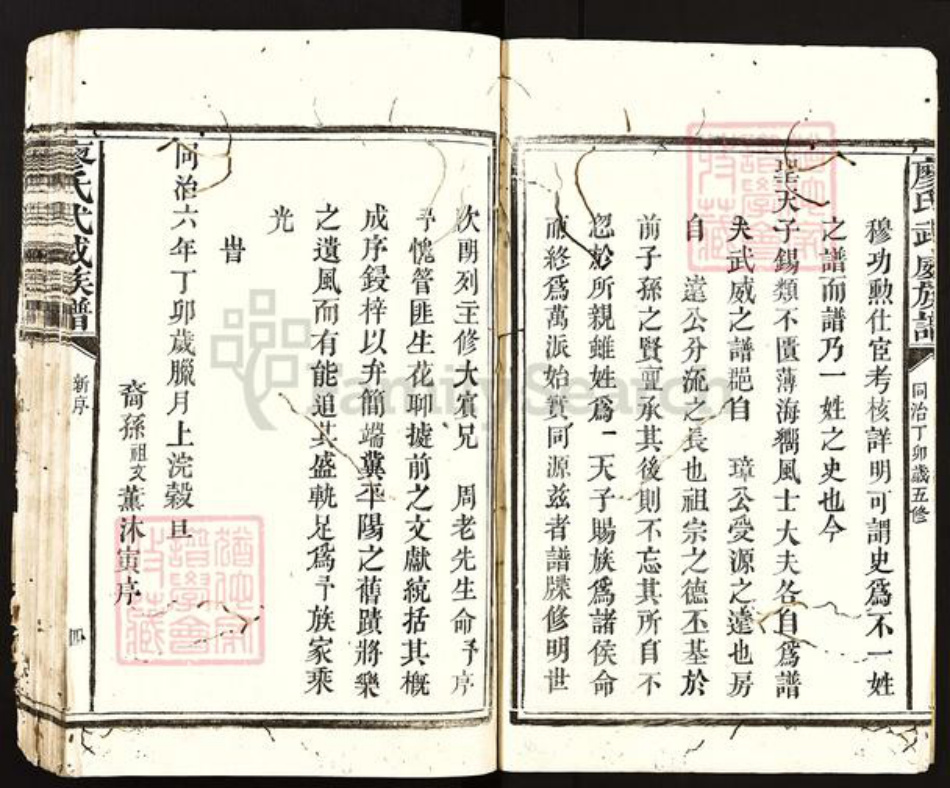 廖氏武威族譜
同治丁卯歲五修
穆功勲仕宦考核詳明可謂史爲不一姓
之譜而譜乃一姓之史也今
聖天子錫類不匱薄海嚮風士大夫各自爲譜
夫武威之譜郶自 璋公受源之遠也房
自 遠公分流之長也祖宗之德丕基於
前子孫之賢亶承其後則不忘其所自不
忽於所親雖姓爲一天子賜族爲諸侯命
而終爲萬派始實同源茲者譜牒修明世
次朗列主修大賓兄 周老先生命予序
予愧管匪生花聊摭前之文獻統括其概
成序鋟梓以弁簡端冀平陽之舊蹟將樂
之遺風而有能追其盛軌足爲予族家乘
光
旹
同治六年丁卯歲臘月上浣穀旦
裔孫祖文薰沐寅序
廖氏武威族譜
新序
四
FamilySearch